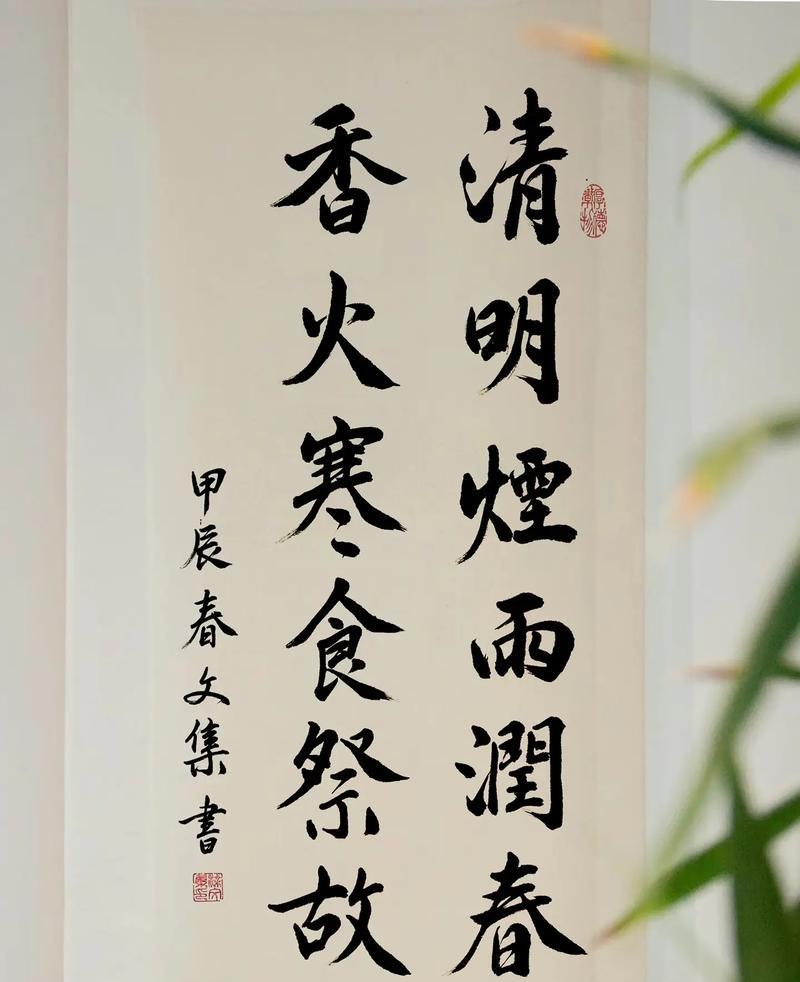 清明煙雨潤春
香火寒食祭故
甲辰春文集書